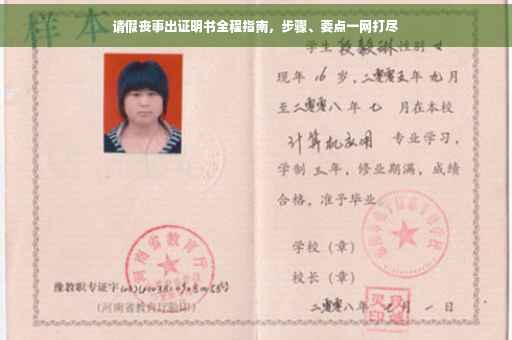 样本
请假丧事出证明书全程指南，步骤、要点一网打尽
学生 段毅琳 性别 女
现年 16 岁，二零零五年 九 月
至二零零八年 七 月在本校
计算机应用 专业学习，
学制 三 年，修业期满，成绩
合格，准予毕业
学校（章）
校长（章）
二零零八年 七 月 一 日
河南省教育厅
豫教职专证字
（河南省教育厅验印）